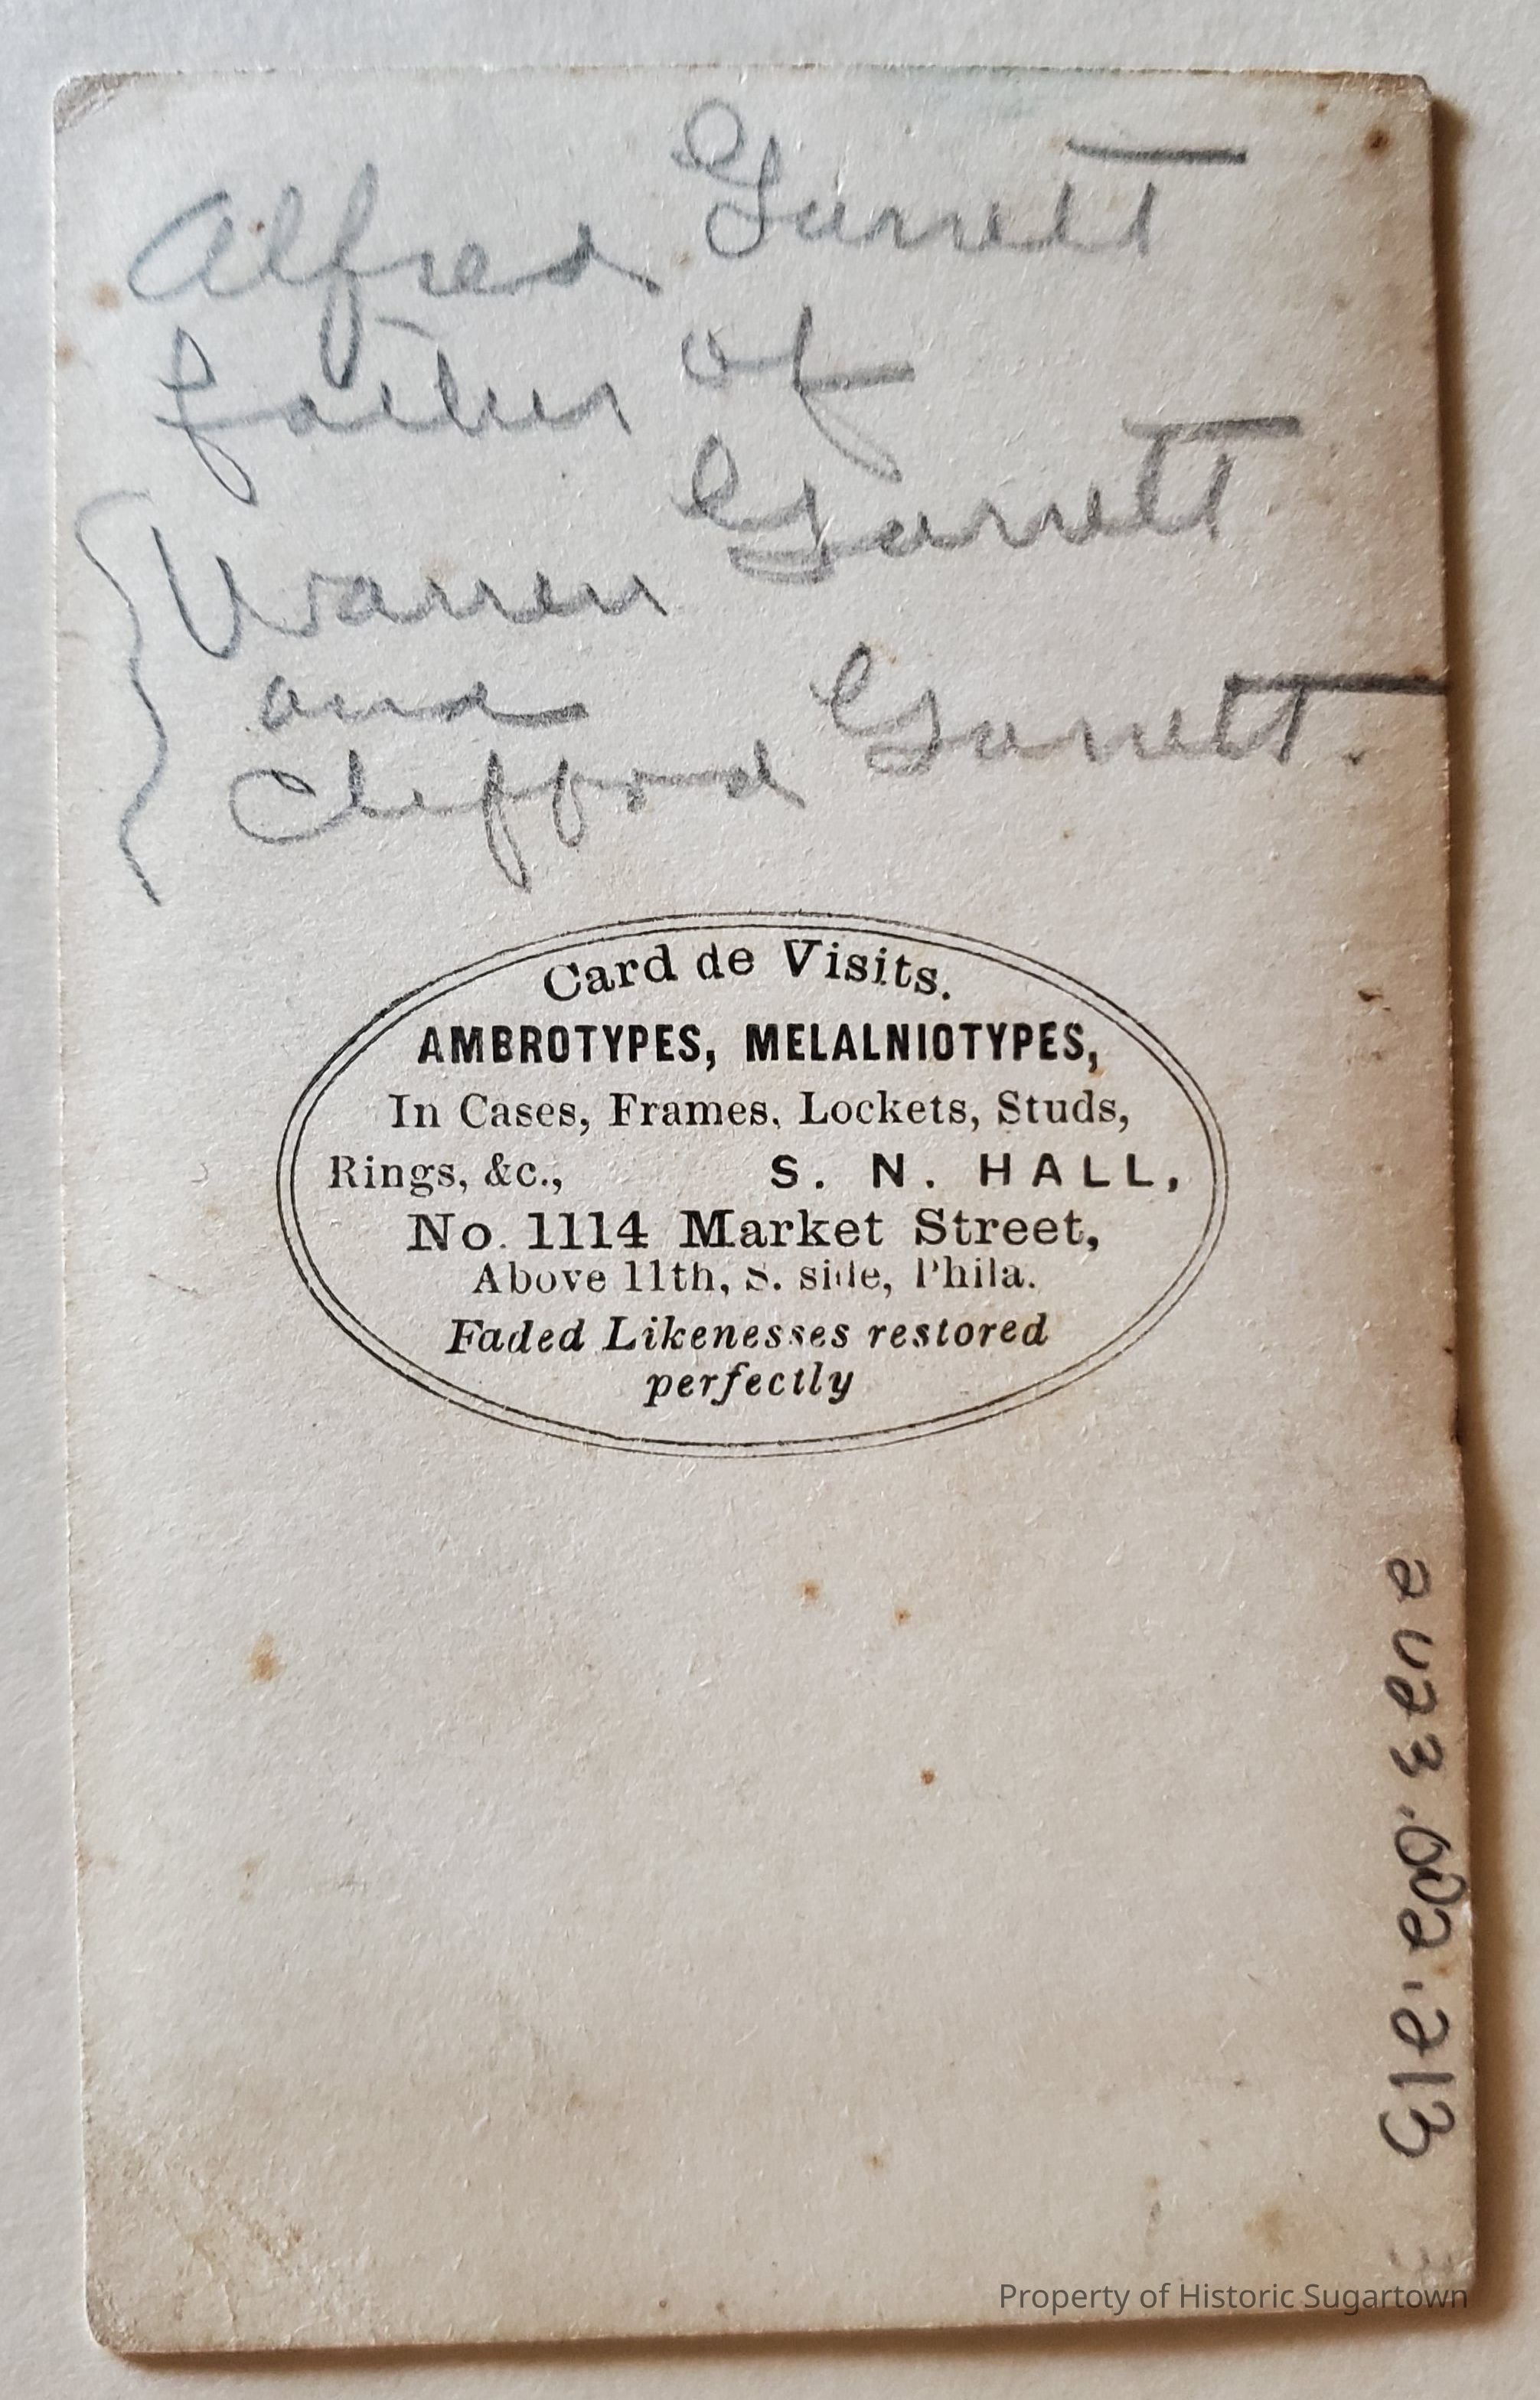 Alfred Garrett
father of
Warren Garrett
and
Clifford Garrett.
Card de Visits.
AMBROTYPES, MELALNIOTYPES,
In Cases, Frames, Lockets, Studs,
Rings, &c., S. N. HALL,
No. 1114 Market Street,
Above 11th, S. side, Phila.
Faded Likenesses restored
perfectly
Property of Historic Sugartown